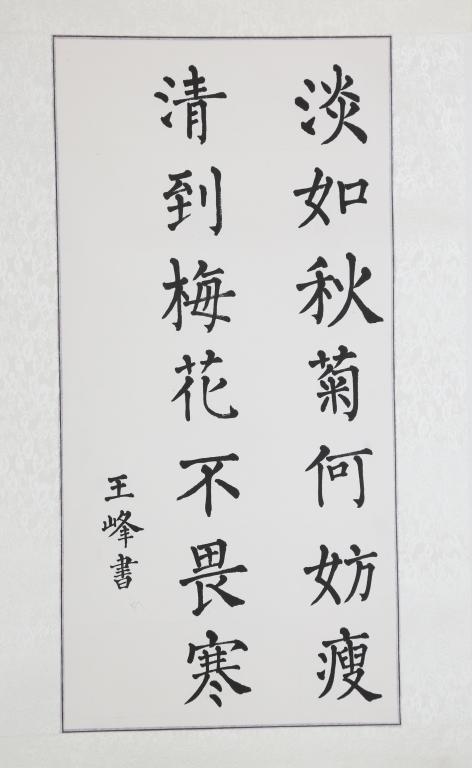 淡如秋菊何妨瘦
清到梅花不畏寒
王峰書